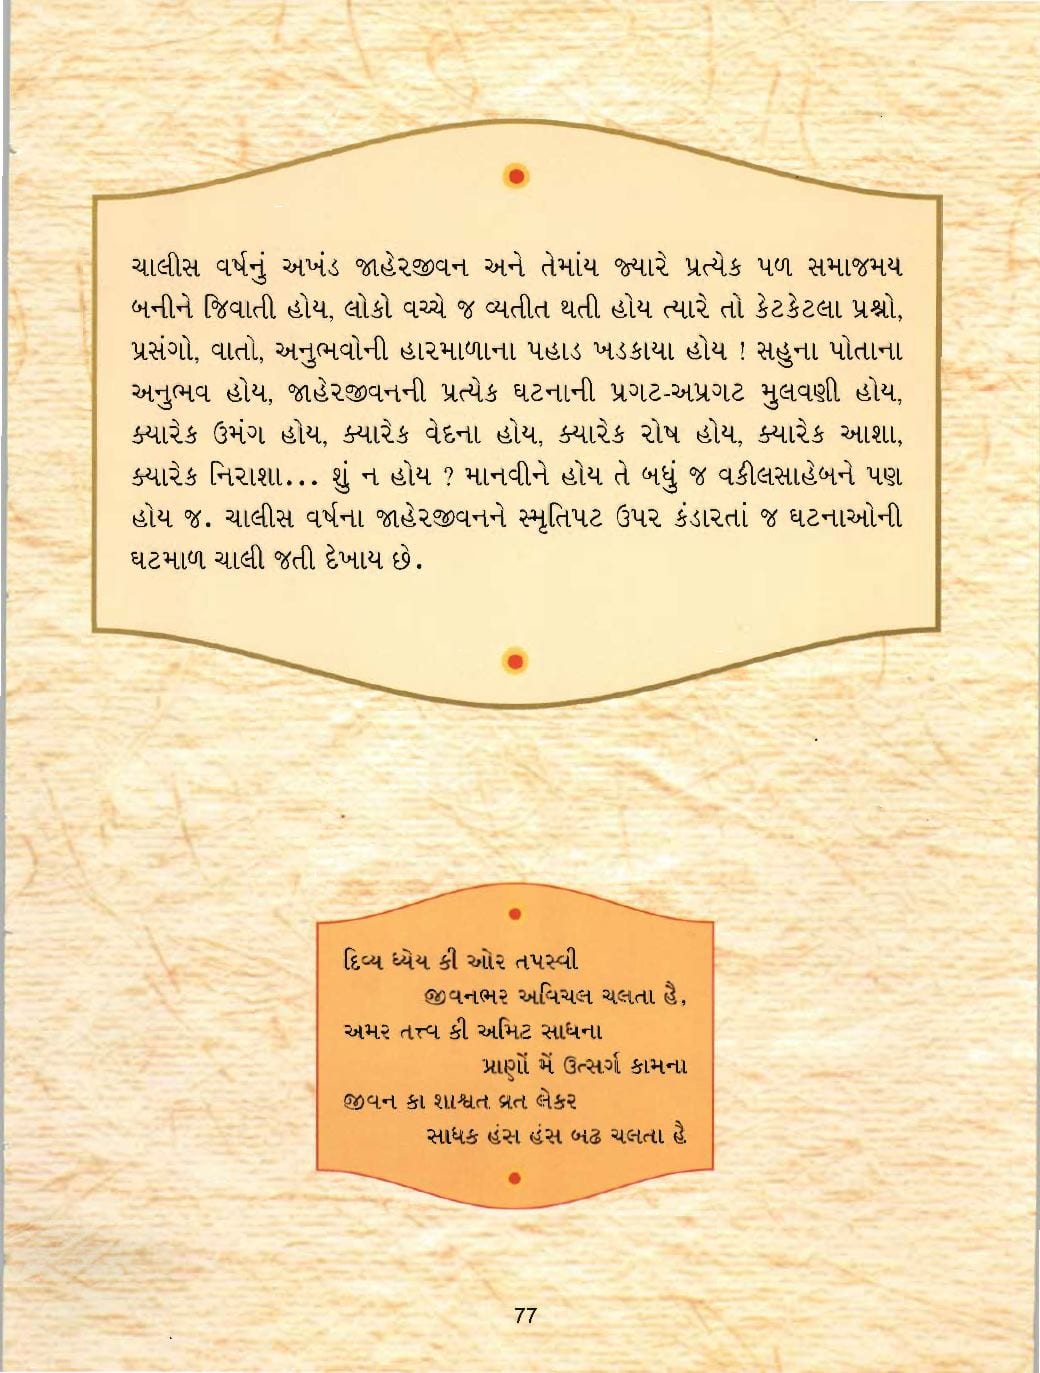 ચાલીસ વર્ષનું અખંડ જાહેરજીવન અને તેમાંય જ્યારે પ્રત્યેક પળ સમાજમય
બનીને જિવાતી હોય, લોકો વચ્ચે જ વ્યતીત થતી હોય ત્યારે તો કેટકેટલા પ્રશ્નો,
પ્રસંગો, વાતો, અનુભવોની હારમાળાના પહાડ ખડકાયા હોય ! સહુના પોતાના
અનુભવ હોય, જાહેરજીવનની પ્રત્યેક ઘટનાની પ્રગટ-અપ્રગટ મુલવણી હોય,
ક્યારેક ઉમંગ હોય, ક્યારેક વેદના હોય, ક્યારેક રોષ હોય, ક્યારેક આશા,
ક્યારેક નિરાશા... શું ન હોય ? માનવીને હોય તે બધું જ વકીલસાહેબને પણ
હોય જ. ચાલીસ વર્ષના જાહેરજીવનને સ્મૃતિપટ ઉપર કંડારતાં જ ઘટનાઓની
ઘટમાળ ચાલી જતી દેખાય છે.
દિવ્ય ધ્યેય કી ઓર તપસ્વી
જીવનભર અવિચલ ચલતા હૈ,
અમર તત્ત્વ કી અમિટ સાધના
પ્રાણોં મેં ઉત્સર્ગ કામના
જીવન કા શાશ્વત વ્રત લેકર
સાધક હંસ હંસ બઢ ચલતા હૈ
77